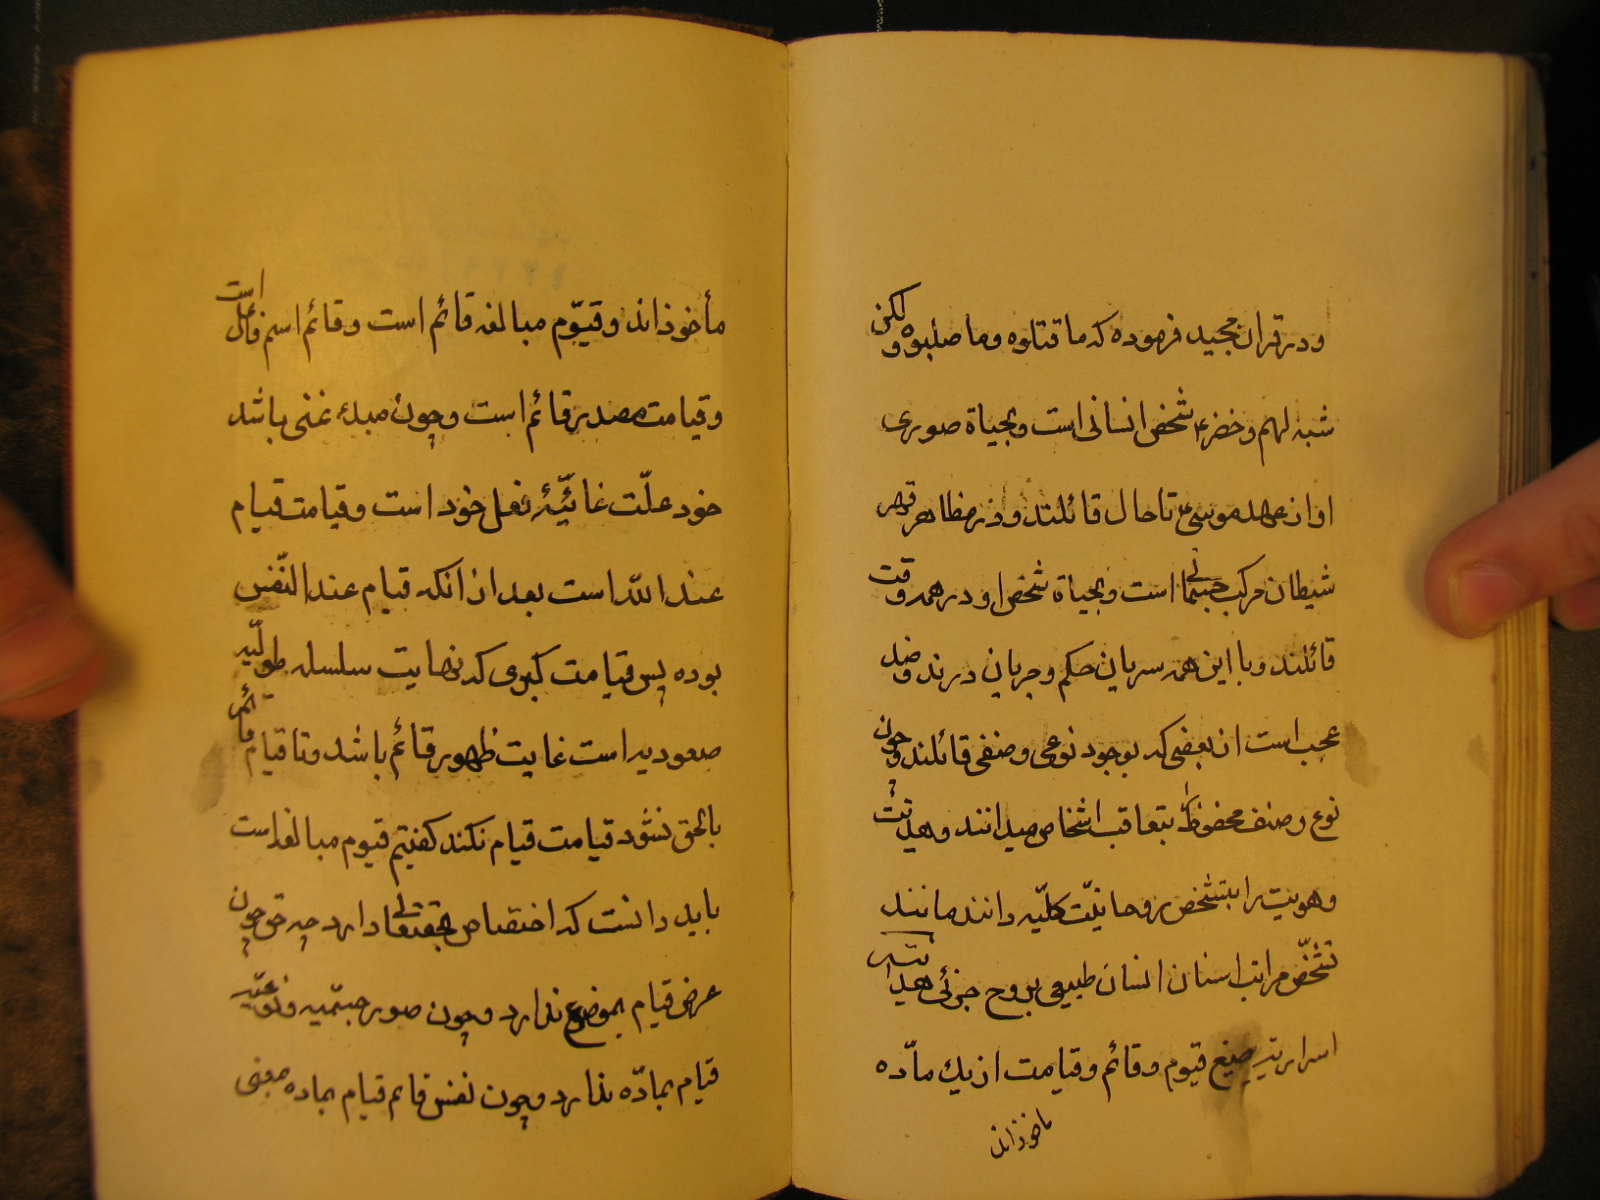 و در قران مجید فرموده که ما قتلوه وما صلبوه و لکن
شبه لهم و خضر ع شخص انسانی است و بحیاة صوری
او از عهد موسی ع تا حال قائلند و در مظاهر قهر
شیطان مرکب جسمانی است و بحیاة شخص او در همه وقت
قائلند و با این همه سریان حکم و جریان درند و ضد
عجب است از بعضی که بوجود نوعی و صنفی قائلند و چون
نوع و صنف محفوظ را بتعاقب اشخاص میدانند و هذیت
وهویت را بتشخص روحانیّت کلیّه دانند مانند
تشخّص مراتب اسنان انسان طبیعی بروح جزئی
اسراریه صیغ قیوم و قائم و قیامت از یک مادّه
ماخوذاند
مأخوذ اند و قیّوم مبالغه قائم است و قائم اسم فاعل است
و قیامت مصدر قائم است و چون مبدء غنی باشد
خود علّت غائیّهٔ فعل خود است و قیامت قیام
عند الله است بعد از انکه قیام عند النّفس
بوده پس قیامت کبری که نهایت سلسله طولیّه
صعودیه است غایت ظهور قائم باشد و تا قیام قائم
بالحق نشود قیامت قیام نکند کفتیم قیوم مبالغه است
باید دانست که اختصاص بحقتعالی دارد چه حق چون
عرض قیام بموضوع ندارد و چون صور جسمیه و نوعیّه
قیام بمادّه ندارد و چون نفس قائم قیام بماده معنی